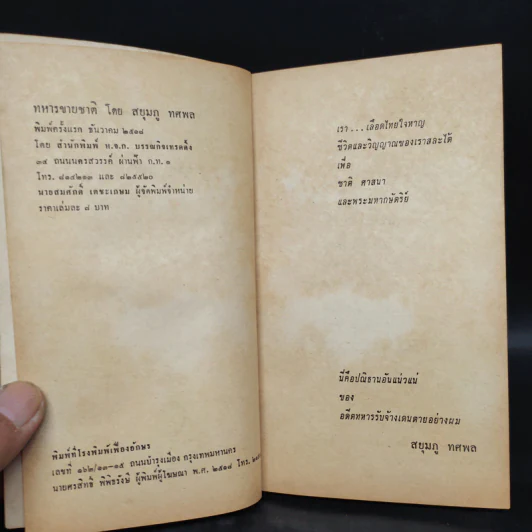 ทหารขายชาติ โดย สยุมภู ทศพล
พิมพ์ครั้งแรก ธันวาคม ๒๕๑๘
โดย สำนักพิมพ์ ห.จ.ก. บรรณกิจเทรดดิ้ง
๓๔ ถนนนครสวรรค์ ผ่านฟ้า ก.ท. ๑
โทร. ๘๑๕๒๑๓ และ ๘๒๕๕๒๐
นายสมศักดิ์ เตชะเกษม ผู้จัดพิมพ์จำหน่าย
ราคาเล่มละ ๘ บาท
พิมพ์ที่โรงพิมพ์เฟื่องอักษร
เลขที่ ๑๖๒/๑๓-๑๕ ถนนบำรุงเมือง กรุงเทพมหานคร
นายศรสิทธิ์ พิพิธรังษี ผู้พิมพ์ผู้โฆษณา พ.ศ. ๒๕๑๘ โทร.
เรา ...เลือดไทยใจหาญ
ชีวิตและวิญญาณของเราสละได้
เพื่อ
ชาติ ศาสนา
และพระมหากษัตริย์
นี่คือปณิธานอันแน่วแน่
ของ
อดีตทหารรับจ้างเดนตายอย่างผม
สยุมภู ทศพล